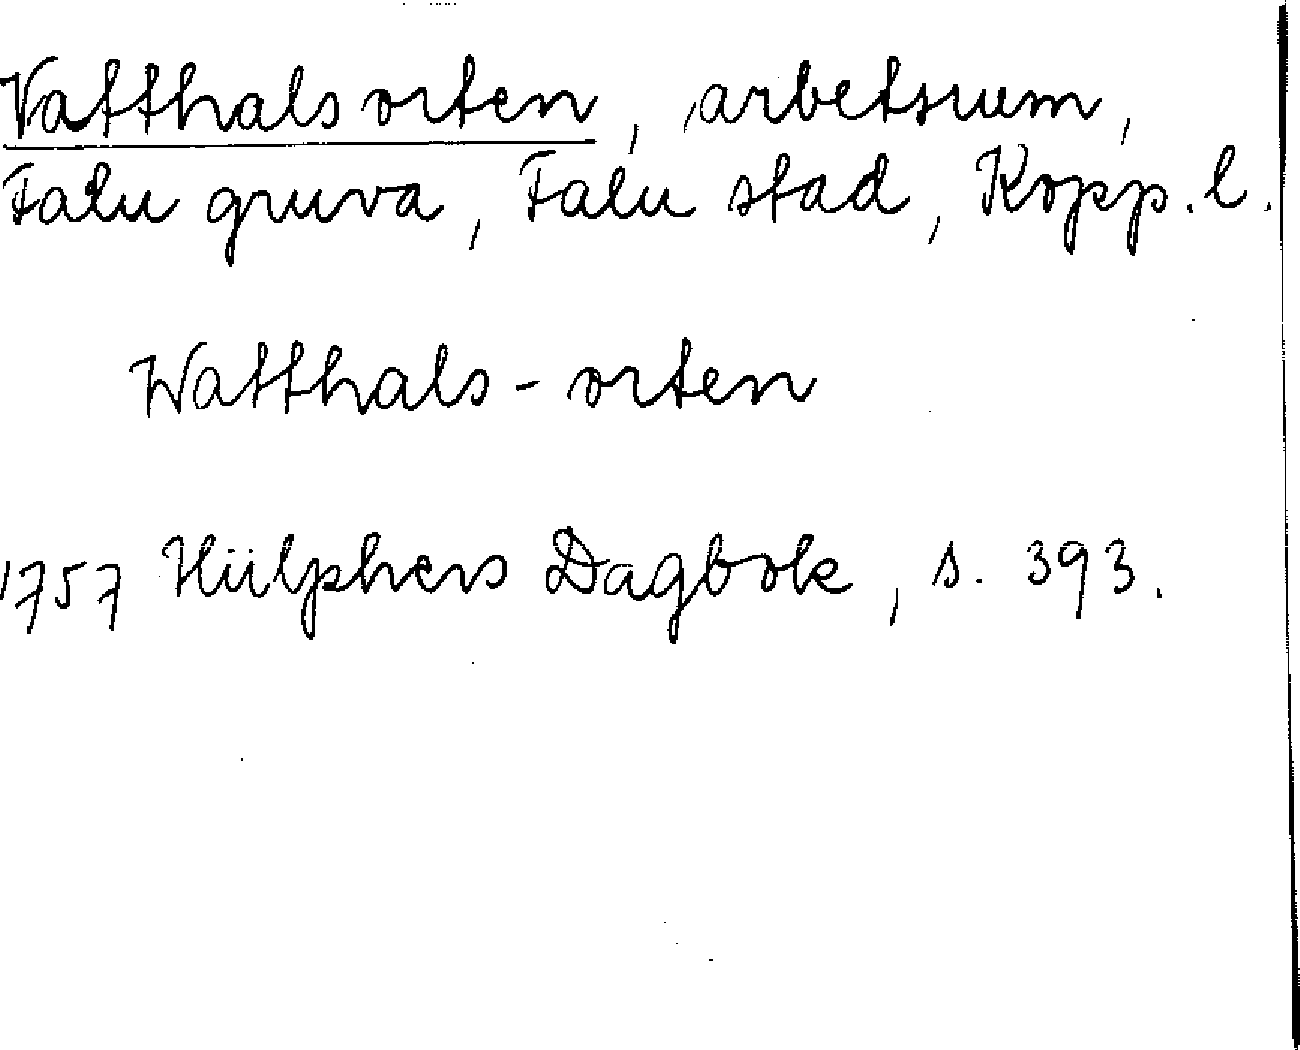 Vatthalsorten, arbetsrum,
Falu gruva, Falu stad, Kopp. l.
Watthals-orten
1757 Hülphers Dagbok, s. 393.